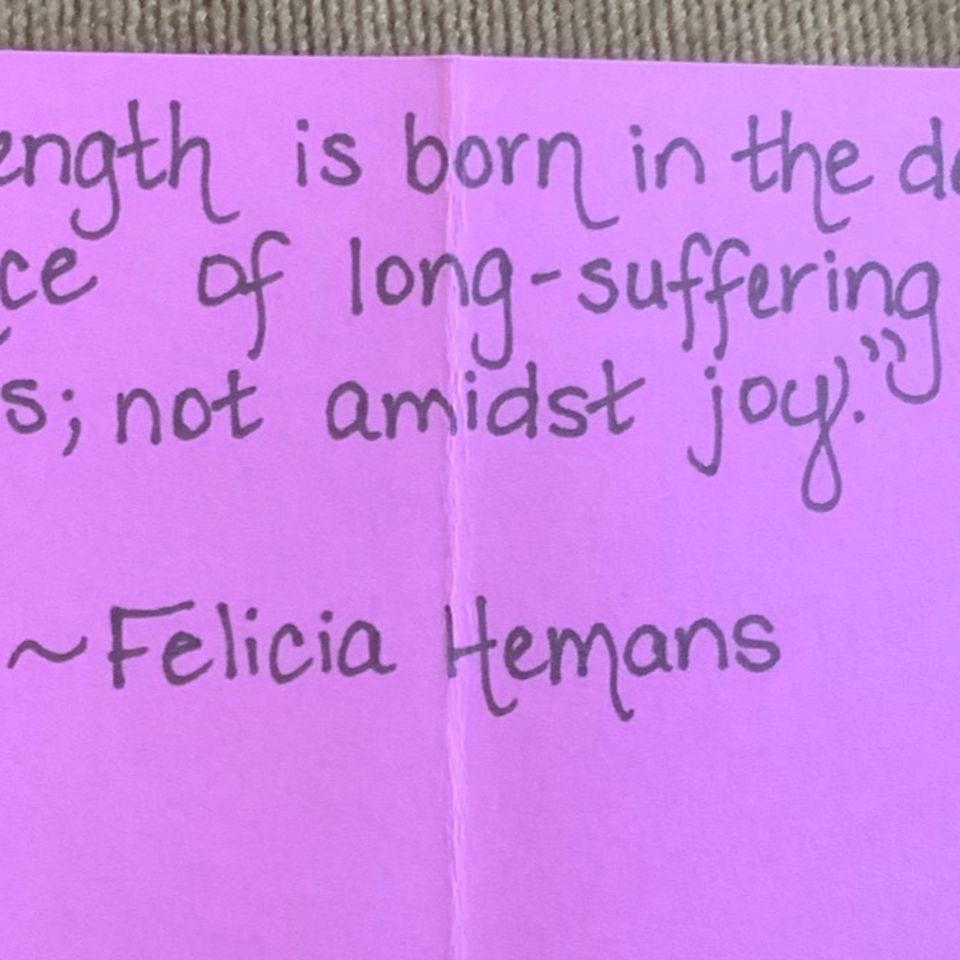 ength is born in the de
ce of long-suffering
s; not amidst joy."
~Felicia Hemans